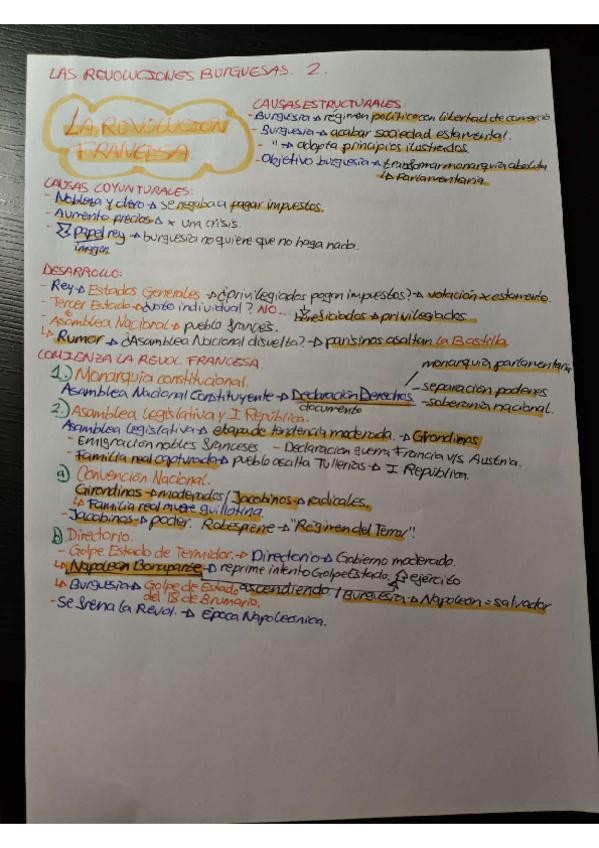 LAS REVOLUCIONES BURGUESAS. 2.
LA REVOLUCION
FRANCESA
CAUSAS ESTRUCTURALES:
- Burguesía → régimen político con libertad de comercio
- Burguesía → acabar sociedad estamental.
- " → adopta principios ilustrados
- Objetivo burguesía → transformar monarquía absoluta
↳ Parlamentaria.
CAUSAS COYUNTURALES:
- Nobleza y clero → se negaba a pagar impuestos.
- Aumento precios → x una crisis.
- papel rey → burguesía no quiere que no haga nada.
imagen
DESARROLLO:
- Rey → Estados Generales → ¿privilegiados pagan impuestos? → votación x estamento.
- Tercer Estado → ¿voto individual? NO...
Beneficiados → privilegiados
- Asamblea Nacional → pueblo francés.
↳ Rumor → ¿Asamblea Nacional disuelta? → parisinos asaltan la Bastilla
COMIENZA LA REVOL. FRANCESA.
monarquía parlamentaria
1.) Monarquía constitucional.
Asamblea Nacional Constituyente → Declaración Derechos
documento
- separación poderes
- soberanía nacional.
2.) Asamblea Legislativa y I República.
Asamblea Legislativa → etapa de tendencia moderada. → Girondinos
- Emigración nobles franceses. - Declaración guerra Francia v/s Austria.
- Familia real capturada → pueblo asalta Tullerias → I República.
a) Convención Nacional.
Girondinos → moderados / Jacobinos → radicales.
↳ Familia real muere guillotina.
- Jacobinos → poder. Robespierre → "Régimen del Terror".
b) Directorio.
- Golpe Estado de Termidor. → Directorio → Gobierno moderado.
↳ Napoleón Bonaparte → reprime intento Golpe Estado. ejército
↳ Burguesía → Golpe de Estado ascendiendo. / Burguesía → Napoleon = salvador
del 18 de Brumario.
- Se frena la Revol. → Época Napoleónica.